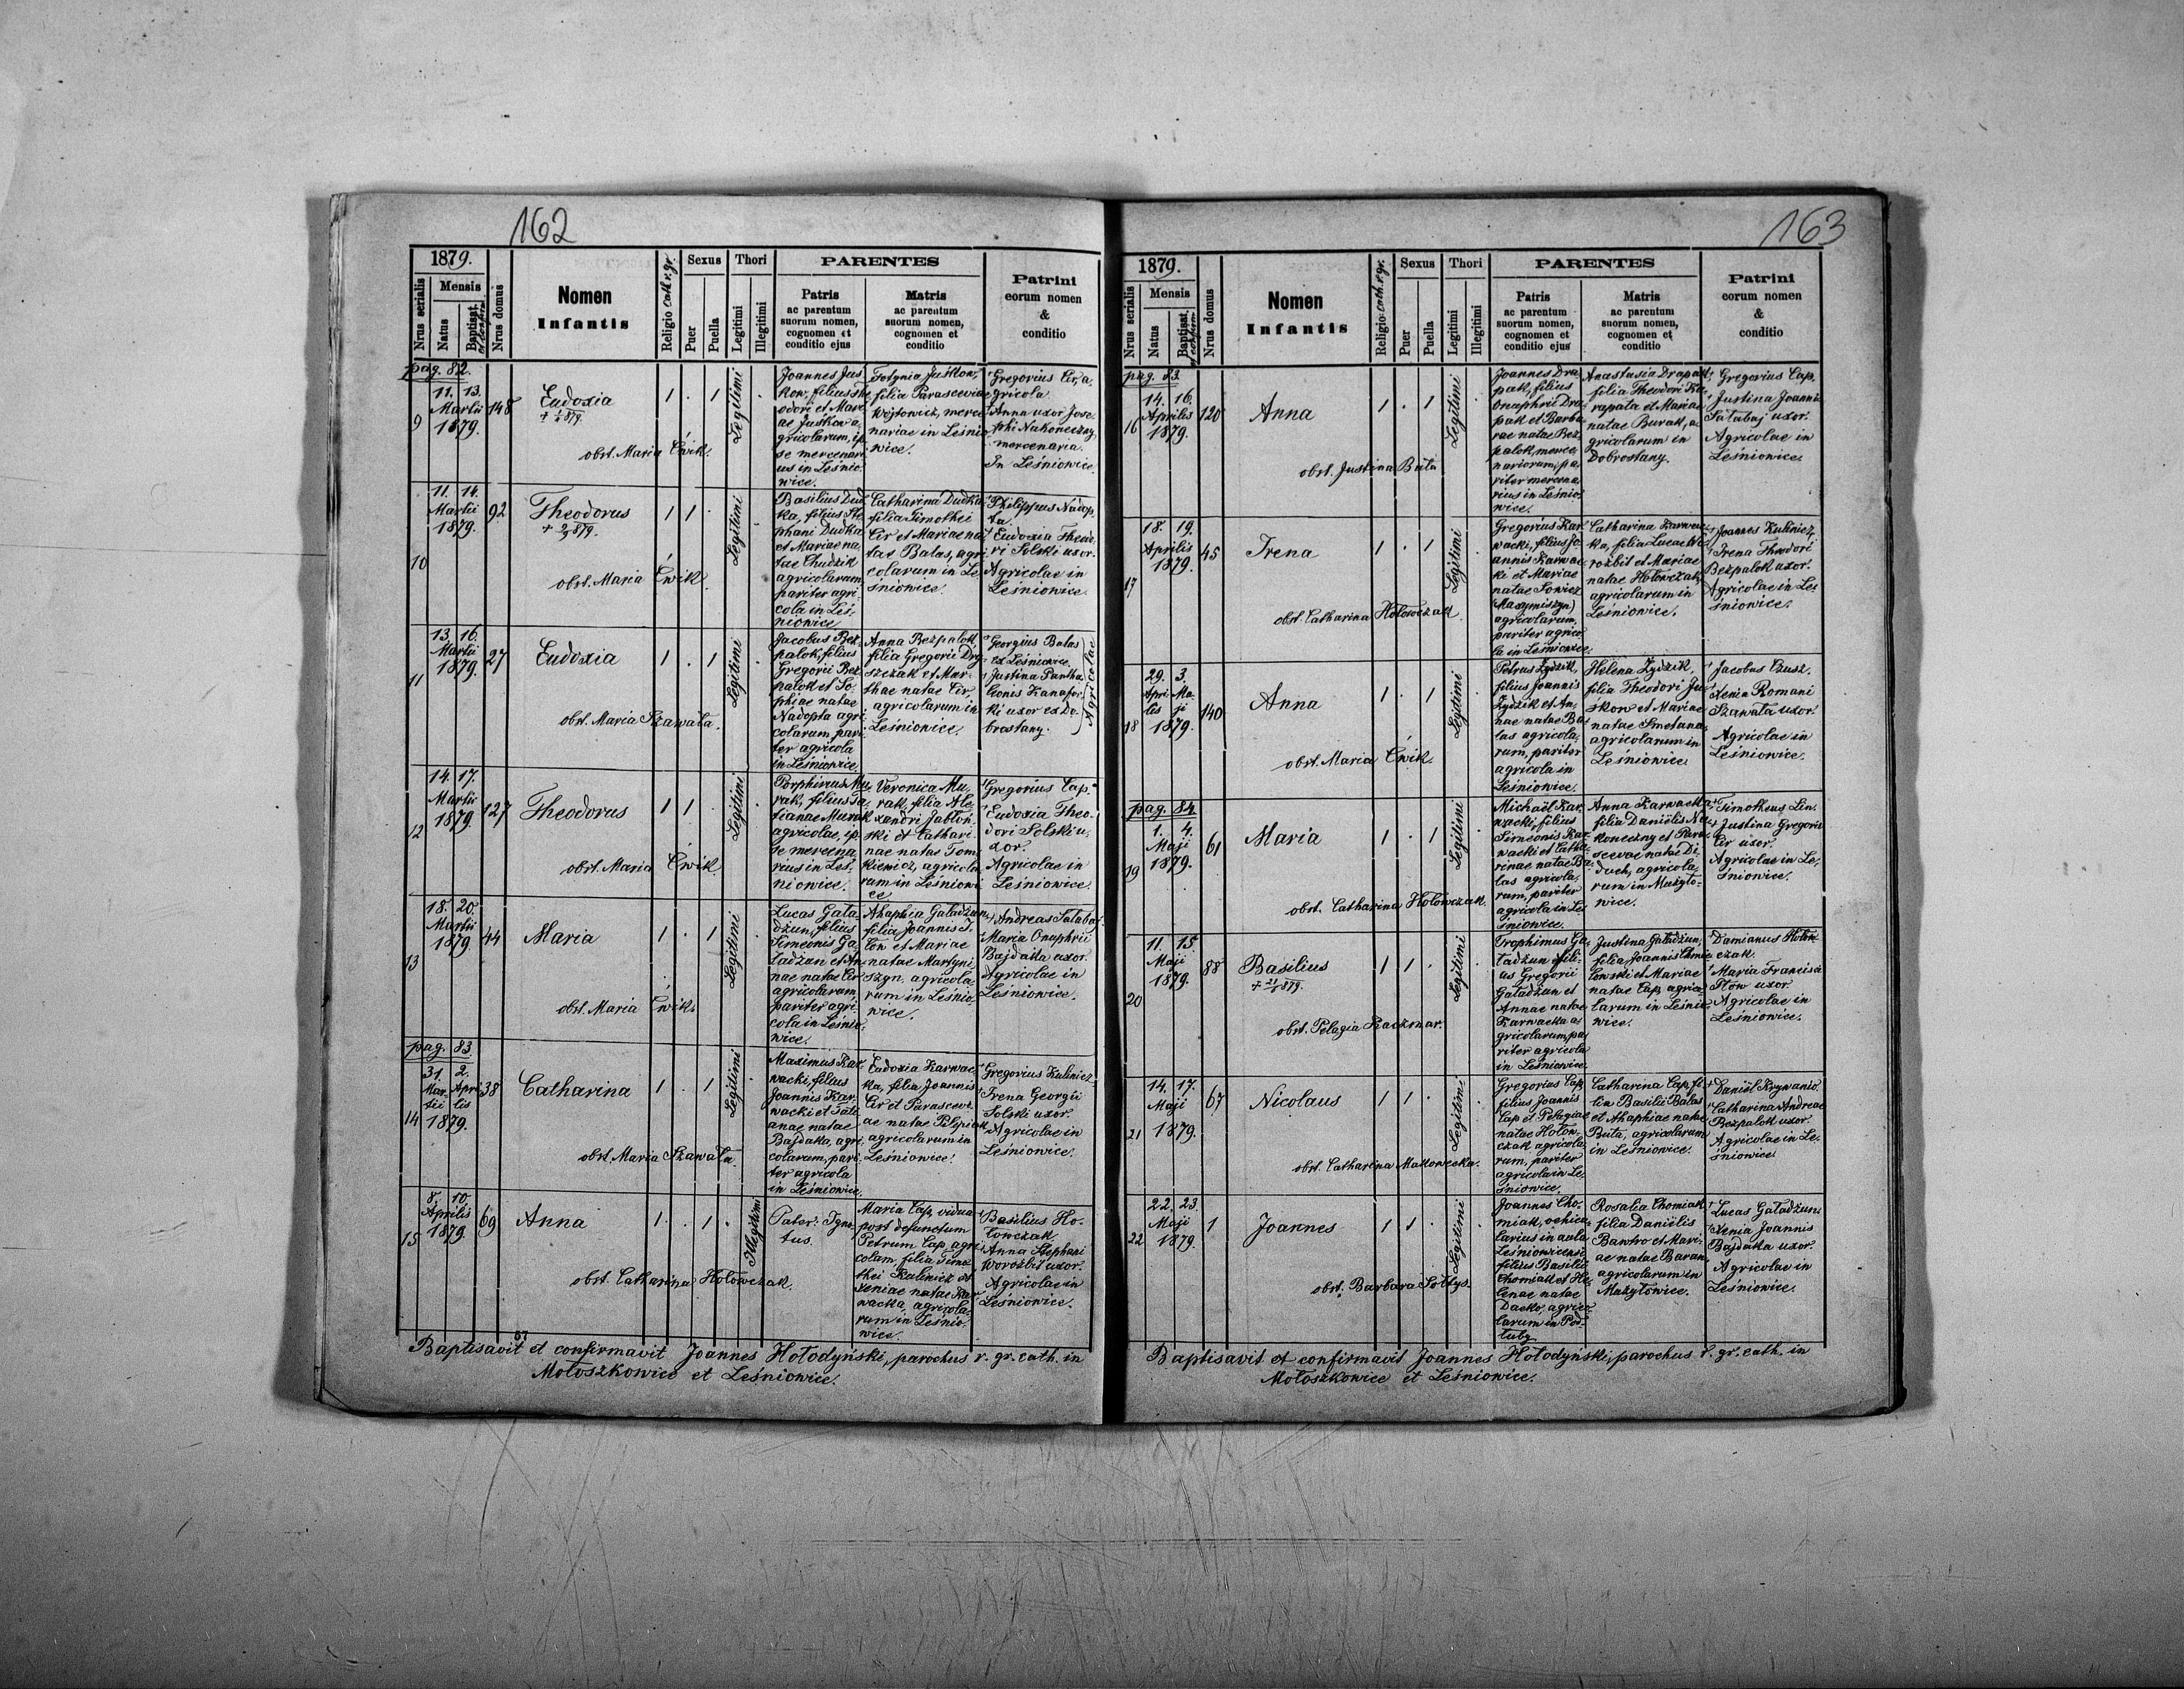 162
1879.
Nrus serialis
Mensis
Natus
Baptisat. et confirm.
Nrus domus
Nomen
Infantis
Religio cath. r. gr.
Sexus
Puer
Puella
Thori
Legitimi
Illegitimi
PARENTES
Patris
ac parentum
suorum nomen,
cognomen et
conditio ejus
Matris
ac parentum
suorum nomen,
cognomen et
conditio
Patrini
eorum nomen
&
conditio
pag. 82.
9
11. 13.
Martii
1879.
148
Eudoxia
obst. Maria Ćwik.
1 . 1
Legitimi
Joannes Jus
kow, filius The
odori et Mari
ae Juśkow a
gricolarum, ip
se mercenari
us in Leśnio
wice.
Fotynia Juśkow,
filia Parasceviae
Wojtowicz, merce
nariae in Leśnio
wice.
Gregorius Cir, a
gricola
Anna uxor Jose
phi Nakoneczny
mercenaria.
In Leśniowice.
10
11. 14.
Martii
1879.
92
Theodorus
obst. Maria Ćwik.
1 1 .
Legitimi
Basilius Dud
ka, filius Ste
phani Dudka
et Mariae na
tae Chudzik
agricolarum
pariter agri
cola in Leś
niowice
Catharina Dudka
filia Timothei
Cir et Mariae na
tae Balas, agri
colarum in Le
śniowice.
Philippus Nadop
ta.
Eudoxia Theodo
ri Solski uxor.
Agricolae in
Leśniowice.
11
13. 16.
Martii
1879.
27
Eudoxia
obst. Maria Szawała.
1 . 1
Legitimi
Jacobus Bez
palok, filius
Gregorii Bez
palok et So
phiae natae
Nadopta agri
colarum, pari
ter agricola
in Leśniowice
Anna Bezpalok
filia Gregorii Dry
szczak et Mar
thae natae Cir,
agricolarum in
Leśniowice.
Georgius Balas
ex Leśniowice.
Justina Pantha
leonis Kanafor
ki uxor ex Do
brostany.
Agricolae
12
14. 17.
Martii
1879.
127
Theodorus
obst. Maria Ćwik.
1 1 .
Legitimi
Porphirius Mu
rak, filius Ta
tianae Murak
agricolae, ip
se mercena
rius in Leś
niowice.
Veronica Mu
rak, filia Ale
xandri Jabłoń
ski et Cathari
nae natae Tom
kiewicz, agricola
rum in Leśniowi
ce
Gregorius Cap.
Eudoxia Theo
dori Solski u
xor.
Agricolae in
Leśniowice.
13
18. 20.
Martii
1879.
44
Maria
obst. Maria Ćwik.
1 . 1
Legitimi
Lucas Gała
dżun, filius
Simeonis Ga
ładżun et An
nae natae Cir
agricolarum
pariter agri
cola in Leśnio
wice.
Ahaphia Gaładżun,
filia Joannis J
łow et Mariae
natae Martyni
szyn. agricola
rum in Leśnio
wice.
Andreas Sałabaj
Maria Onuphrii
Bajdałka uxor.
Agricolae in
Leśniowice.
pag. 83.
14
31. 2.
Mar Apri
tii lis
1879.
38
Catharina
obst. Maria Szawała.
1 . 1
Legitimi
Maximus Kar
wacki, filius
Joannis Kar
wacki et Tati
anae natae
Bajdałka, agri
colarum, pari
ter agricola
in Leśniowice.
Eudoxia Karwac
ka, filia Joannis
Cir et Parascevi
ae natae Pilipiak
agricolarum in
Leśniowice.
Gregorius Kulinicz.
Irena Georgii
Solski uxor.
Agricolae in
Leśniowice.
15
8. 10.
Aprilis
1879.
69
Anna
obst. Catharina Hołowczak.
1 . 1 .
Illegitimi
Pater: Igno
tus.
Maria Cap, vidua
post defunctum
Petrum Cap, agri
colam, filia Timo
thei Kulinicz et
Xeniae natae Kar
wacka, agricola
rum in Leśnio
wice.
Basilius Ho
łowczak.
Anna Stephani
Worożbit uxor.
Agricolae in
Leśniowice.
Baptisavit et confirmavit Joannes Hołodyński, parochus r. gr. cath. in
Mołoszkowice et Leśniowice.
163
1879.
Nrus serialis
Mensis
Natus
Baptisat. et confirm.
Nrus domus
Nomen
Infantis
Religio cath. r. gr.
Sexus
Puer
Puella
Thori
Legitimi
Illegitimi
PARENTES
Patris
ac parentum
suorum nomen,
cognomen et
conditio ejus
Matris
ac parentum
suorum nomen,
cognomen et
conditio
Patrini
eorum nomen
&
conditio
pag. 83.
16
14. 16.
Aprilis
1879.
120
Anna
obst. Justina Buta
1 . 1
Legitimi
Joannes Dra
pak, filius
Onuphrii Dra
pak et Barba
rae natae Bez
palok, merce
nariorum, pa
riter mercena
rius in Leśnio
wice.
Anastasia Drapak
filia Theodori Ka
rapata et Mariae
natae Burak, a
gricolarum in
Dobrostany.
Gregorius Cap.
Justina Joannis
Sałabaj uxor.
Agricolae in
Leśniowice.
17
18. 19.
Aprilis
1879.
45
Irena
obst. Catharina Hołowczak.
1 . 1
Legitimi
Gregorius Kar
wacki, filius Jo
annis Karwac
ki et Mariae
natae Sowicz
(Maxymiszyn)
agricolarum,
pariter agrico
la in Leśniowice.
Catharina Karwac
ka, filia Lucae Wo
rożbit et Mariae
natae Hołowczak,
agricolarum in
Leśniowice.
Joannes Kulinicz.
Irena Theodori
Bezpalok uxor.
Agricolae in Le
śniowice.
18
29. 3.
Apri Ma
lis ji
1879.
140
Anna
obst. Maria Ćwik.
1 . 1
Legitimi
Petrus Żydzik,
filius Joannis
Żydzik et An
nae natae Ba
las agricola
rum, pariter
agricola in
Leśniowice.
Helena Żydzik,
filia Theodori Ju
skow et Mariae
natae Smetana,
agricolarum in
Leśniowice
Jacobus Czusz.
Xenia Romani
Szawała uxor.
Agricolae in
Leśniowice.
pag. 84
19
1. 4.
Maji
1879.
61
Maria
obst. Catharina Hołowczak.
1 . 1
Legitimi
Michaël Kar
wacki, filius
Simeonis Kar
wacki et Catha
rinae natae Ba
las agricola
rum, pariter
agricola in Le
śniowice.
Anna Karwacka,
filia Daniëlis Na
koneczny et Para
scevae natae Di
duch, agricola
rum in Mużyło
wice.
Timotheus Lin.
Justina Gregorii
Cir uxor.
Agricolae in Le
śniowice.
20
11. 15.
Maji
1879.
88
Basilius
obst. Pelagia Kaczmar.
1 1 .
Legitimi
Trophimus Ga
ładżun fili
us Gregorii
Gaładżun et
Annae natae
Karwacka a
gricolarum, pa
riter agricola
in Leśniowice.
Justina Gaładżun,
filia Joannis Chmie
lowski et Mariae
natae Cap, agrico
larum in Leśnio
wice.
Damianus Hołow
czak.
Maria Francisci
Iłów uxor
Agricolae in
Leśniowice.
21
14. 17.
Maji
1879.
67
Nicolaus
obst. Catharina Makowecka.
1 1 .
Legitimi
Gregorius Cap
filius Joannis
Cap et Pelagiae
natae Hołow
czak agricola
rum, pariter
agricola in Le
śniowice.
Catharina Cap, fi
lia Basilii Balas
et Ahaphiae natae
Buta, agricolarum
in Leśniowice.
Daniël Krywanio.
Catharina Andreae
Bezpalok uxor.
Agricolae in Le
śniowice.
22
22. 23.
Maji
1879.
1
Joannes
obst. Barbara Sołtys.
1 1 .
Legitimi
Joannes Cho
miak, ochicz
larius in aula
Leśniowicensi
filius Basilii
Chomiak et He
lenae natae
Dacko, agrico
larum in Pod
łuby
Rosalia Chomiak
filia Daniëlis
Bawtro et Mari
ae natae Baran
agricolarum in
Mużyłowice.
Lucas Gaładżun.
Xenia Joannis
Bajdałka uxor.
Agricolae in
Leśniowice.
Baptisavit et confirmavit Joannes Hołodyński, parochus r. gr. cath. in
Mołoszkowice et Leśniowice.